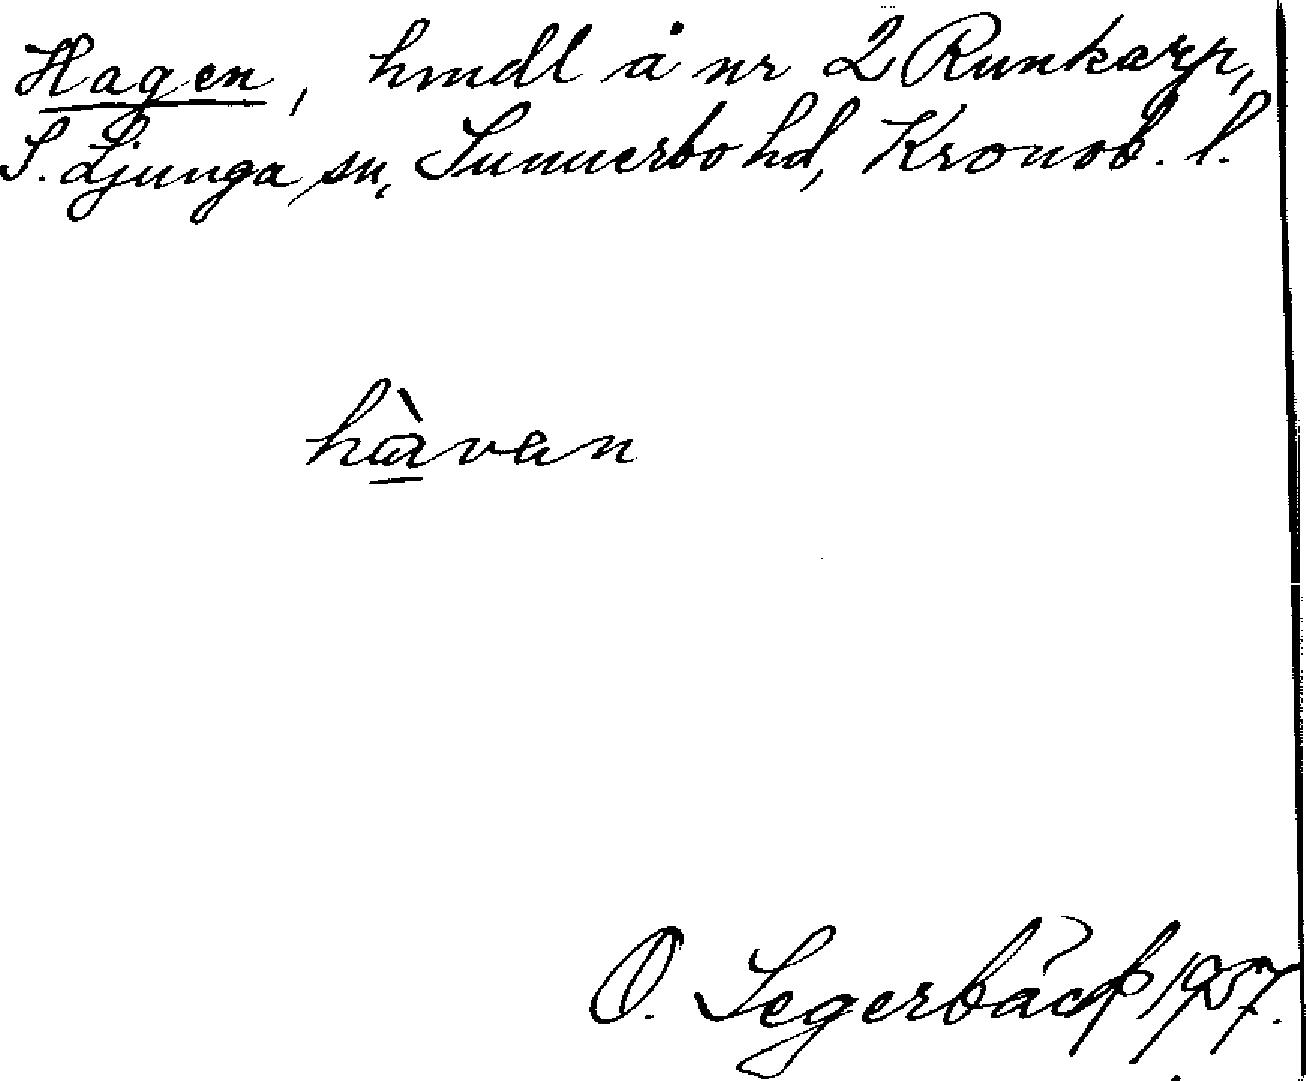 Hagen, hmdl å nr 2 Runkarp,
S. Ljunga sn, Sunnerbo hd, Kronob. l.
hàvan
O. Segerbäck 1957.